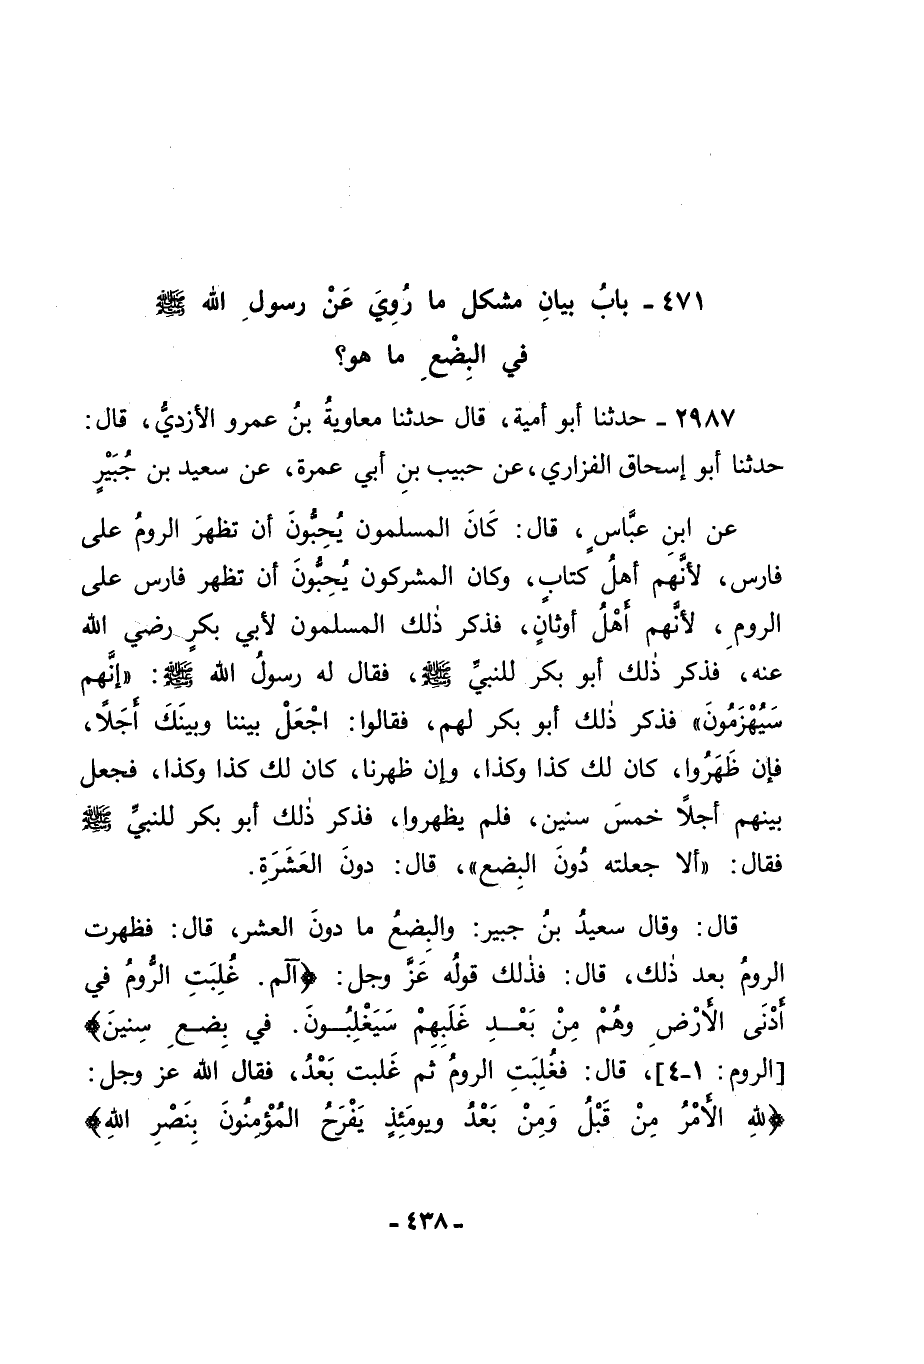 ٤٧١ ـ بابُ بيانِ مشكل ما رُوِيَ عَنْ رسولِ الله ﷺ
في البِضْعِ ما هو؟
٢٩٨٧ ـ حدثنا أبو أمية، قال حدثنا معاويةُ بنُ عمرو الأزديُّ، قال:
حدثنا أبو إسحاق الفزاري، عن حبيب بنِ أبي عمرة، عن سعيد بن جُبَيْرٍ
عن ابنِ عبَّاسٍ، قال: كَانَ المسلمون يُحِبُّونَ أن تظهرَ الرومُ على
فارس، لأنَّهم أهلُ كتابٍ، وكان المشركون يُحِبُّونَ أن تظهر فارس على
الرومِ، لأنَّهم أَهْلُ أوثانٍ، فذكر ذٰلك المسلمون لأبي بكرٍ رضي الله
عنه، فذكر ذٰلك أبو بكر للنبيِّ ﷺ، فقال له رسولُ الله ﷺ: «إنَّهم
سَيُهْزَمُونَ» فذكر ذٰلك أبو بكر لهم، فقالوا: اجْعَلْ بيننا وبينَكَ أَجَلاً،
فإن ظَهَرُوا، كان لك كذا وكذا، وإن ظهرنا، كان لك كذا وكذا، فجعل
بينهم أجلاً خمسَ سنين، فلم يظهروا، فذكر ذٰلك أبو بكر للنبيِّ ﷺ
فقال: «ألا جعلته دُونَ البِضع»، قال: دونَ العَشَرَةِ.
قال: وقال سعيدُ بنُ جبير: والبِضعُ ما دونَ العشر، قال: فظهرت
الرومُ بعد ذٰلك، قال: فذٰلك قولُه عَزَّ وجل: ﴿آلم. غُلِبَتِ الرُّومُ في
أَدْنَى الأَرْضِ وهُمْ مِنْ بَعْـدِ غَلَبِهِمْ سَيَغْلِبُـونَ. في بِضعِ سِنينَ﴾
[الروم: ١-٤]، قال: فغُلِبَتِ الرومُ ثم غَلبت بَعْدُ، فقال الله عز وجل:
﴿للهِ الأَمْرُ مِنْ قَبْلُ وَمِنْ بَعْدُ ويومَئِذٍ يَفْرَحُ المُؤْمِنُونَ بِنَصْرِ اللهِ﴾
- ٤٣٨ -